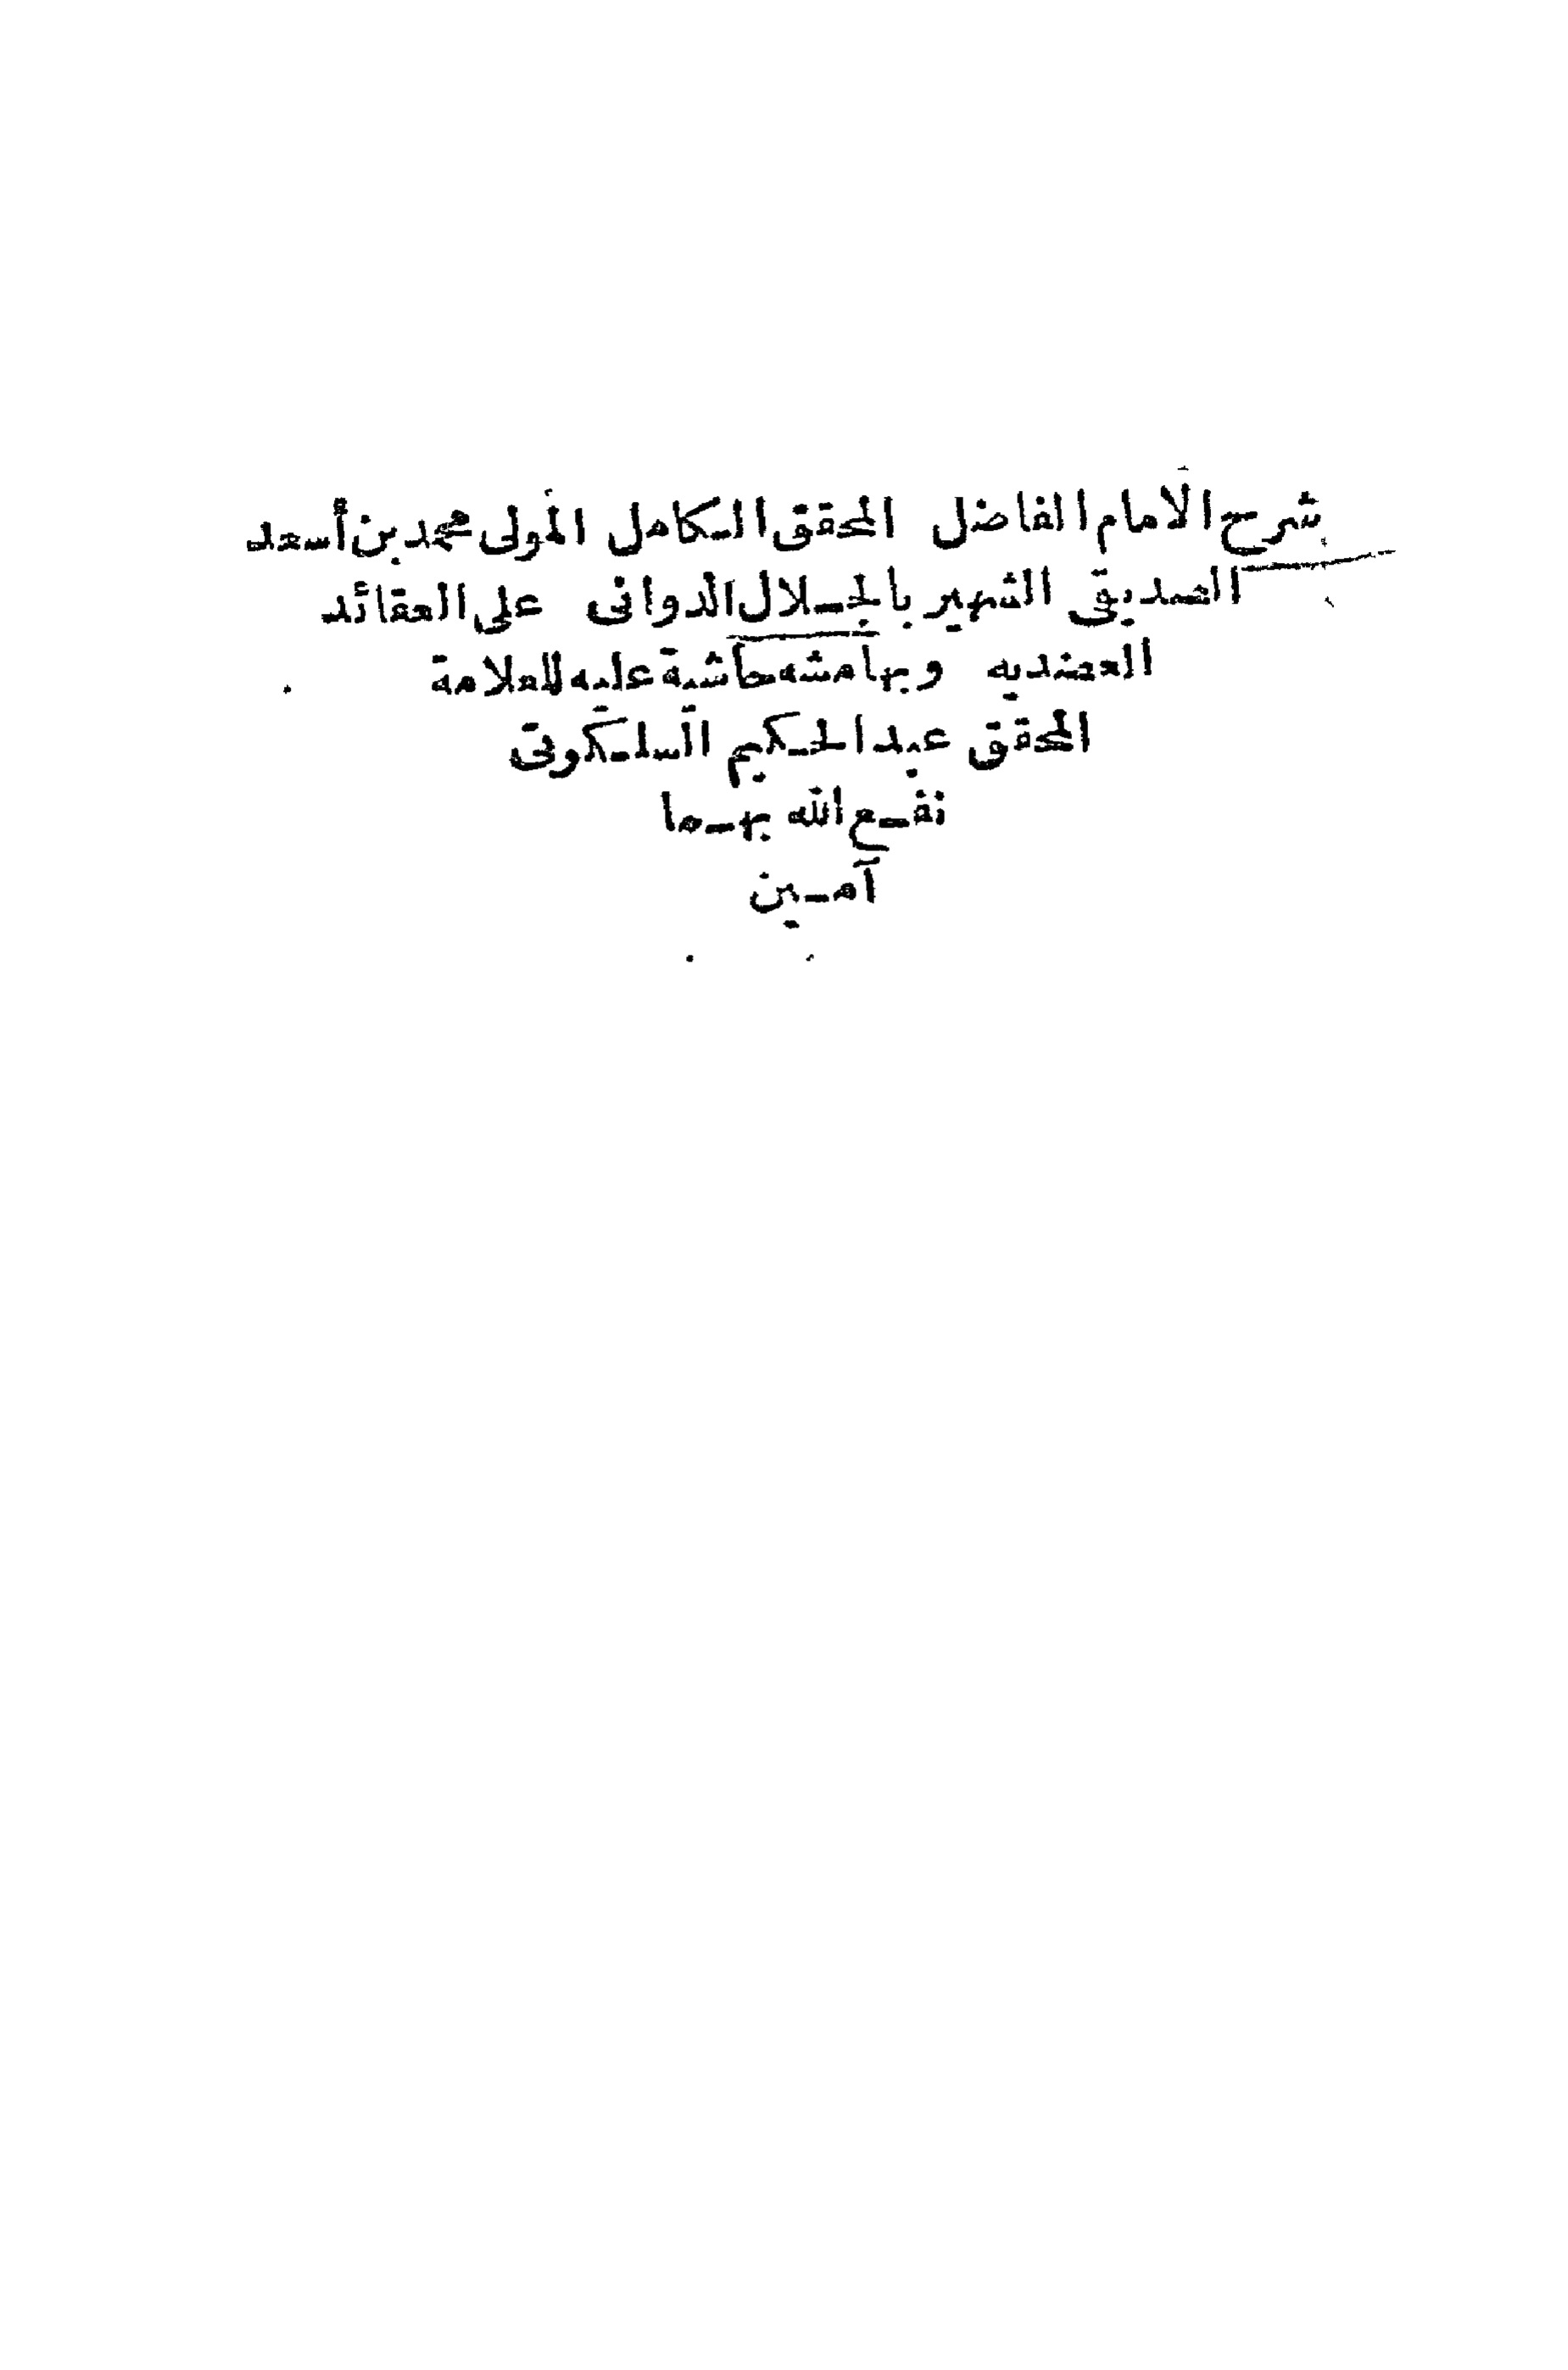 شرح الامام الفاضل المحقق الكامل المولى محمد بن أسعد
الصديقى الشهير بالجلال الدوانى على العقائد
العضديه وبهامشه حاشية عليه للعلامة
المحقق عبد الحكيم السلكوتى
نفع الله بهما
آمين